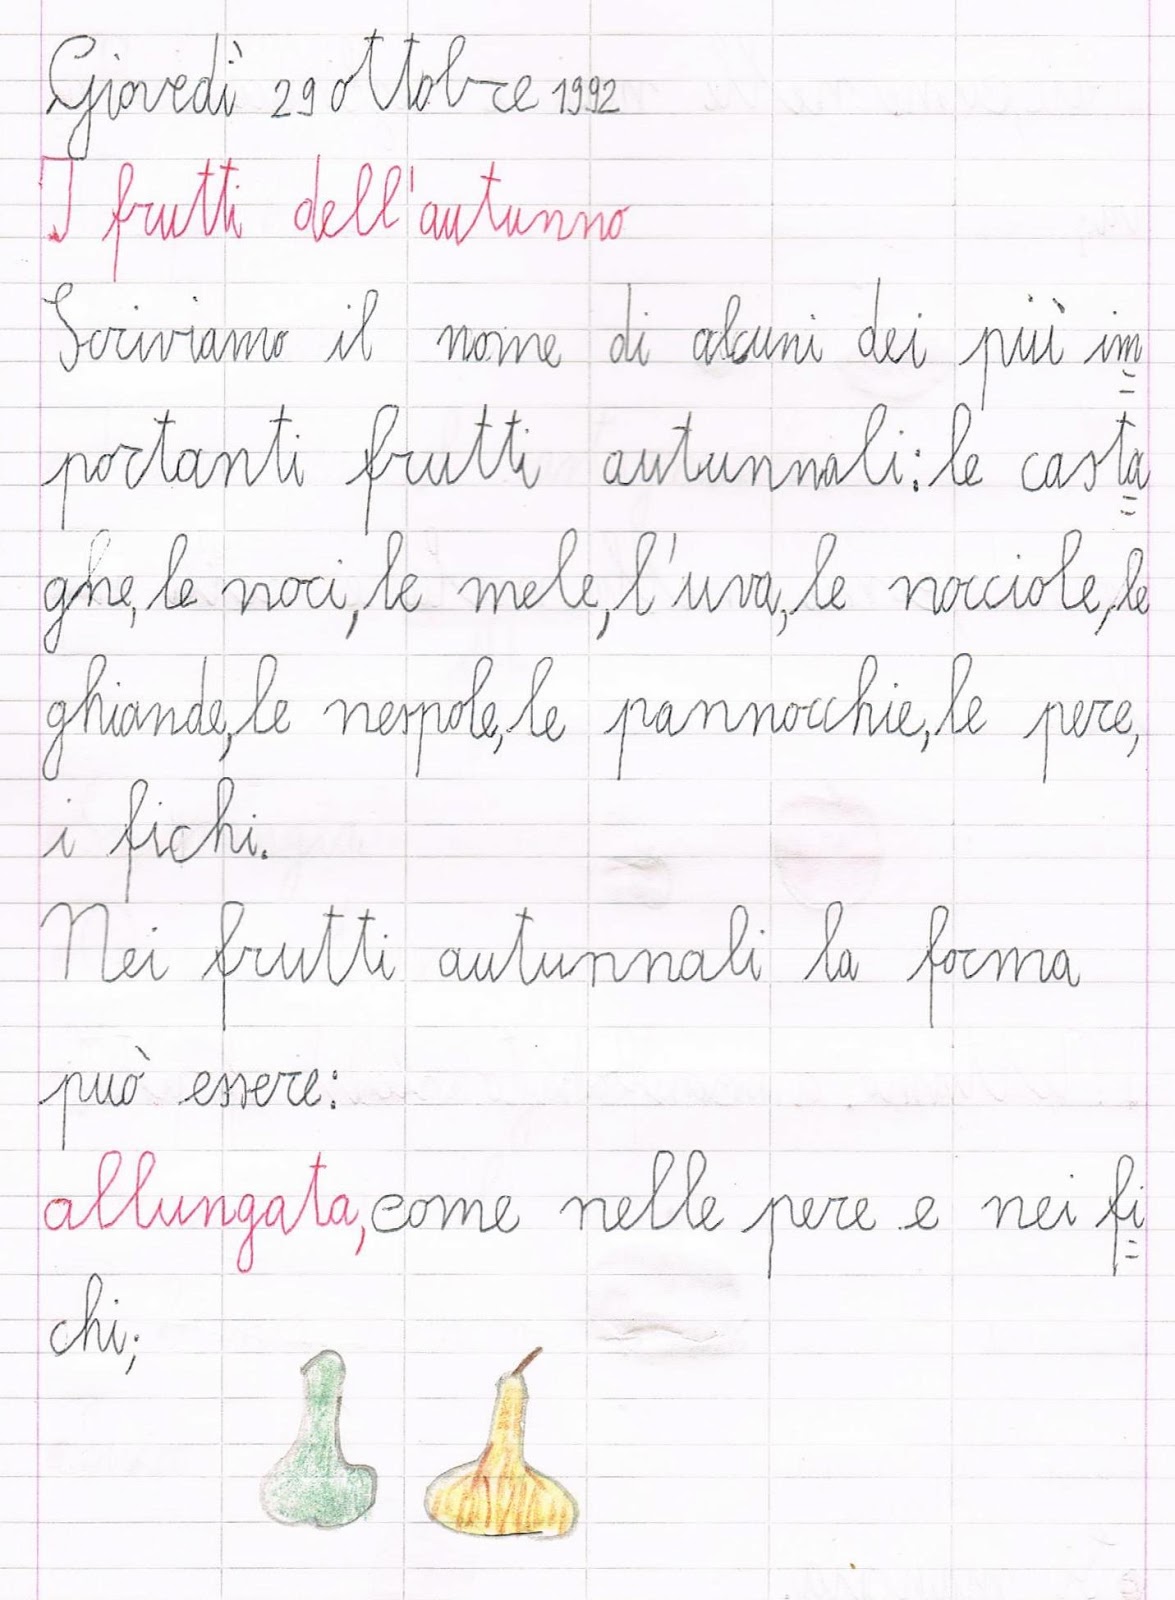 Giovedì 29 ottobre 1992
I frutti dell'autunno
Scriviamo il nome di alcuni dei più im=
portanti frutti autunnali: le casta=
ghe, le noci, le mele, l'uva, le nocciole, le
ghiande, le nespole, le pannocchie, le pere,
i fichi.
Nei frutti autunnali la forma
può essere:
allungata, come nelle pere e nei fi=
chi;